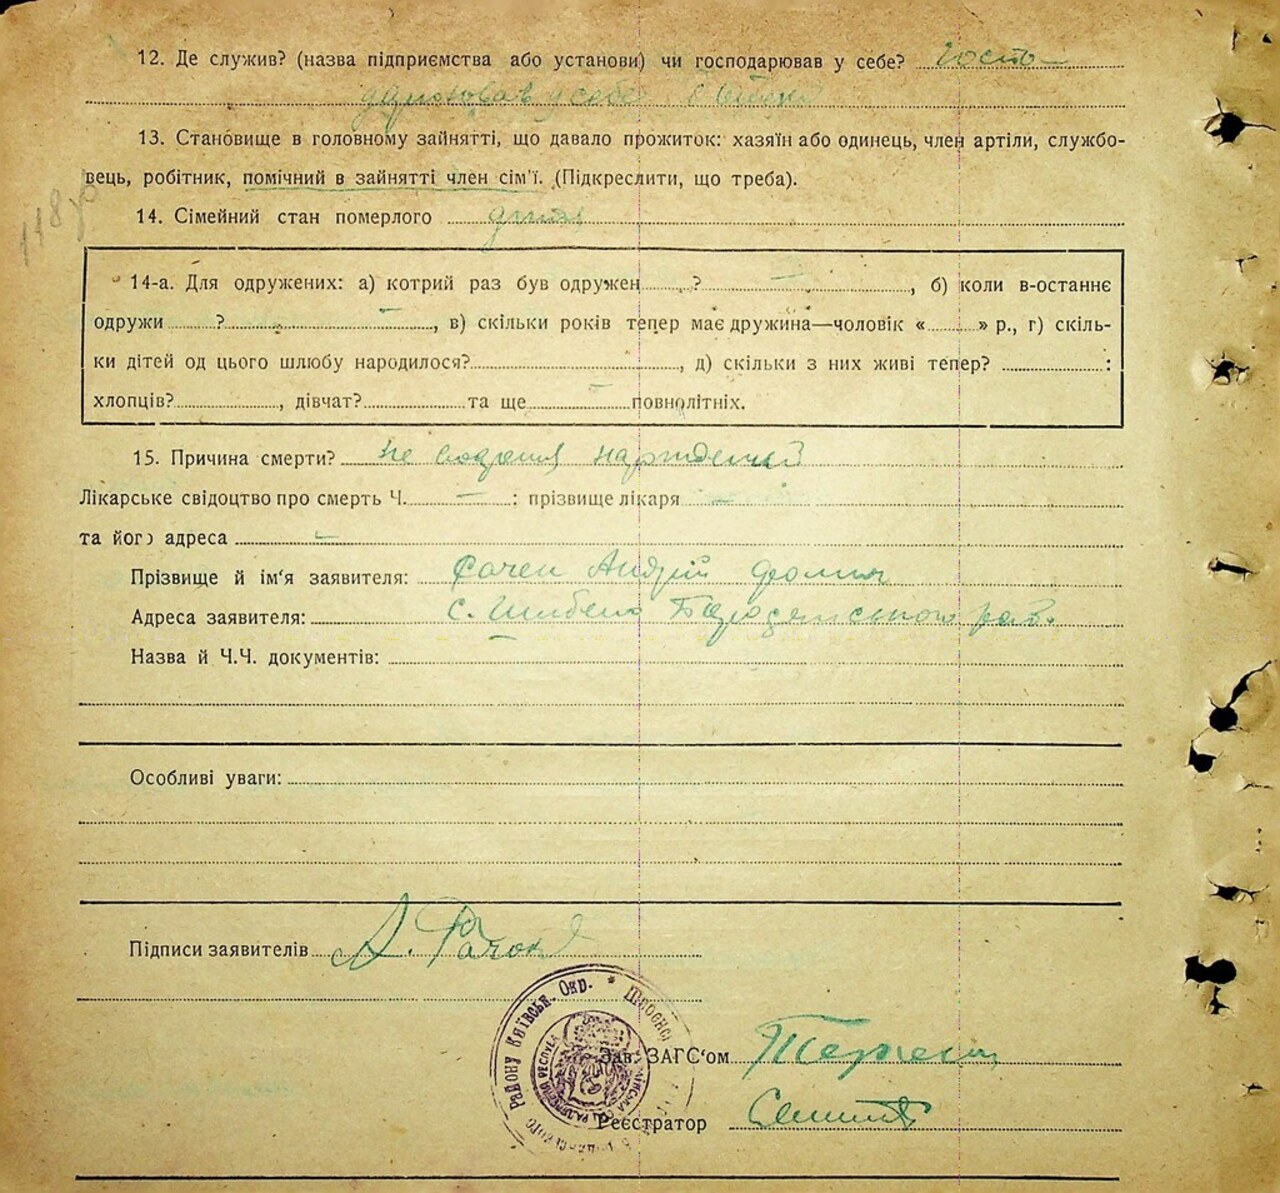 12. Де служив? (назва підприємства або установи) чи господарював у себе? Госпо-
дарював у себе
13. Становище в головному зайнятті, що давало прожиток: хазяїн або одинець, член артіли, службо-
вець, робітник, помічний в зайнятті член сім'ї. (Підкреслити, що треба).
118
14. Сімейний стан померлого дитя
14-а. Для одружених: а) котрий раз був одружен ? —, б) коли в-останнє
одружи ? —, в) скільки років тепер має дружина—чоловік « » р., г) скіль-
ки дітей од цього шлюбу народилося? , д) скільки з них живі тепер? :
хлопців? , дівчат? та ще — повнолітніх.
15. Причина смерти? не
Лікарське свідоцтво про смерть Ч. — : прізвище лікаря —
та його адреса —
Прізвище й ім'я заявителя: Андрій
Адреса заявителя: с. Шибено Бородянського рай.
Назва й Ч.Ч. документів: —
Особливі уваги:
Підписи заявителів
РАЙОНУ КИЇВСЬК. ОКР. *
Зав. ЗАГС'ом
Реєстратор